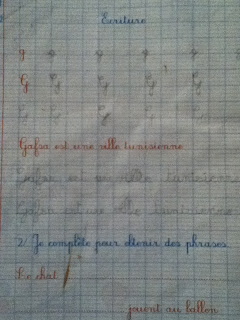 Ecriture
g g g g g g
G G G G G
G G G G G
Gafsa est une ville tunisienne
Gafsa est une ville tunisienne
Gafsa est une ville tunisienne
2/ Je complète pour obtenir des phrases
Le chat
jouent au ballon